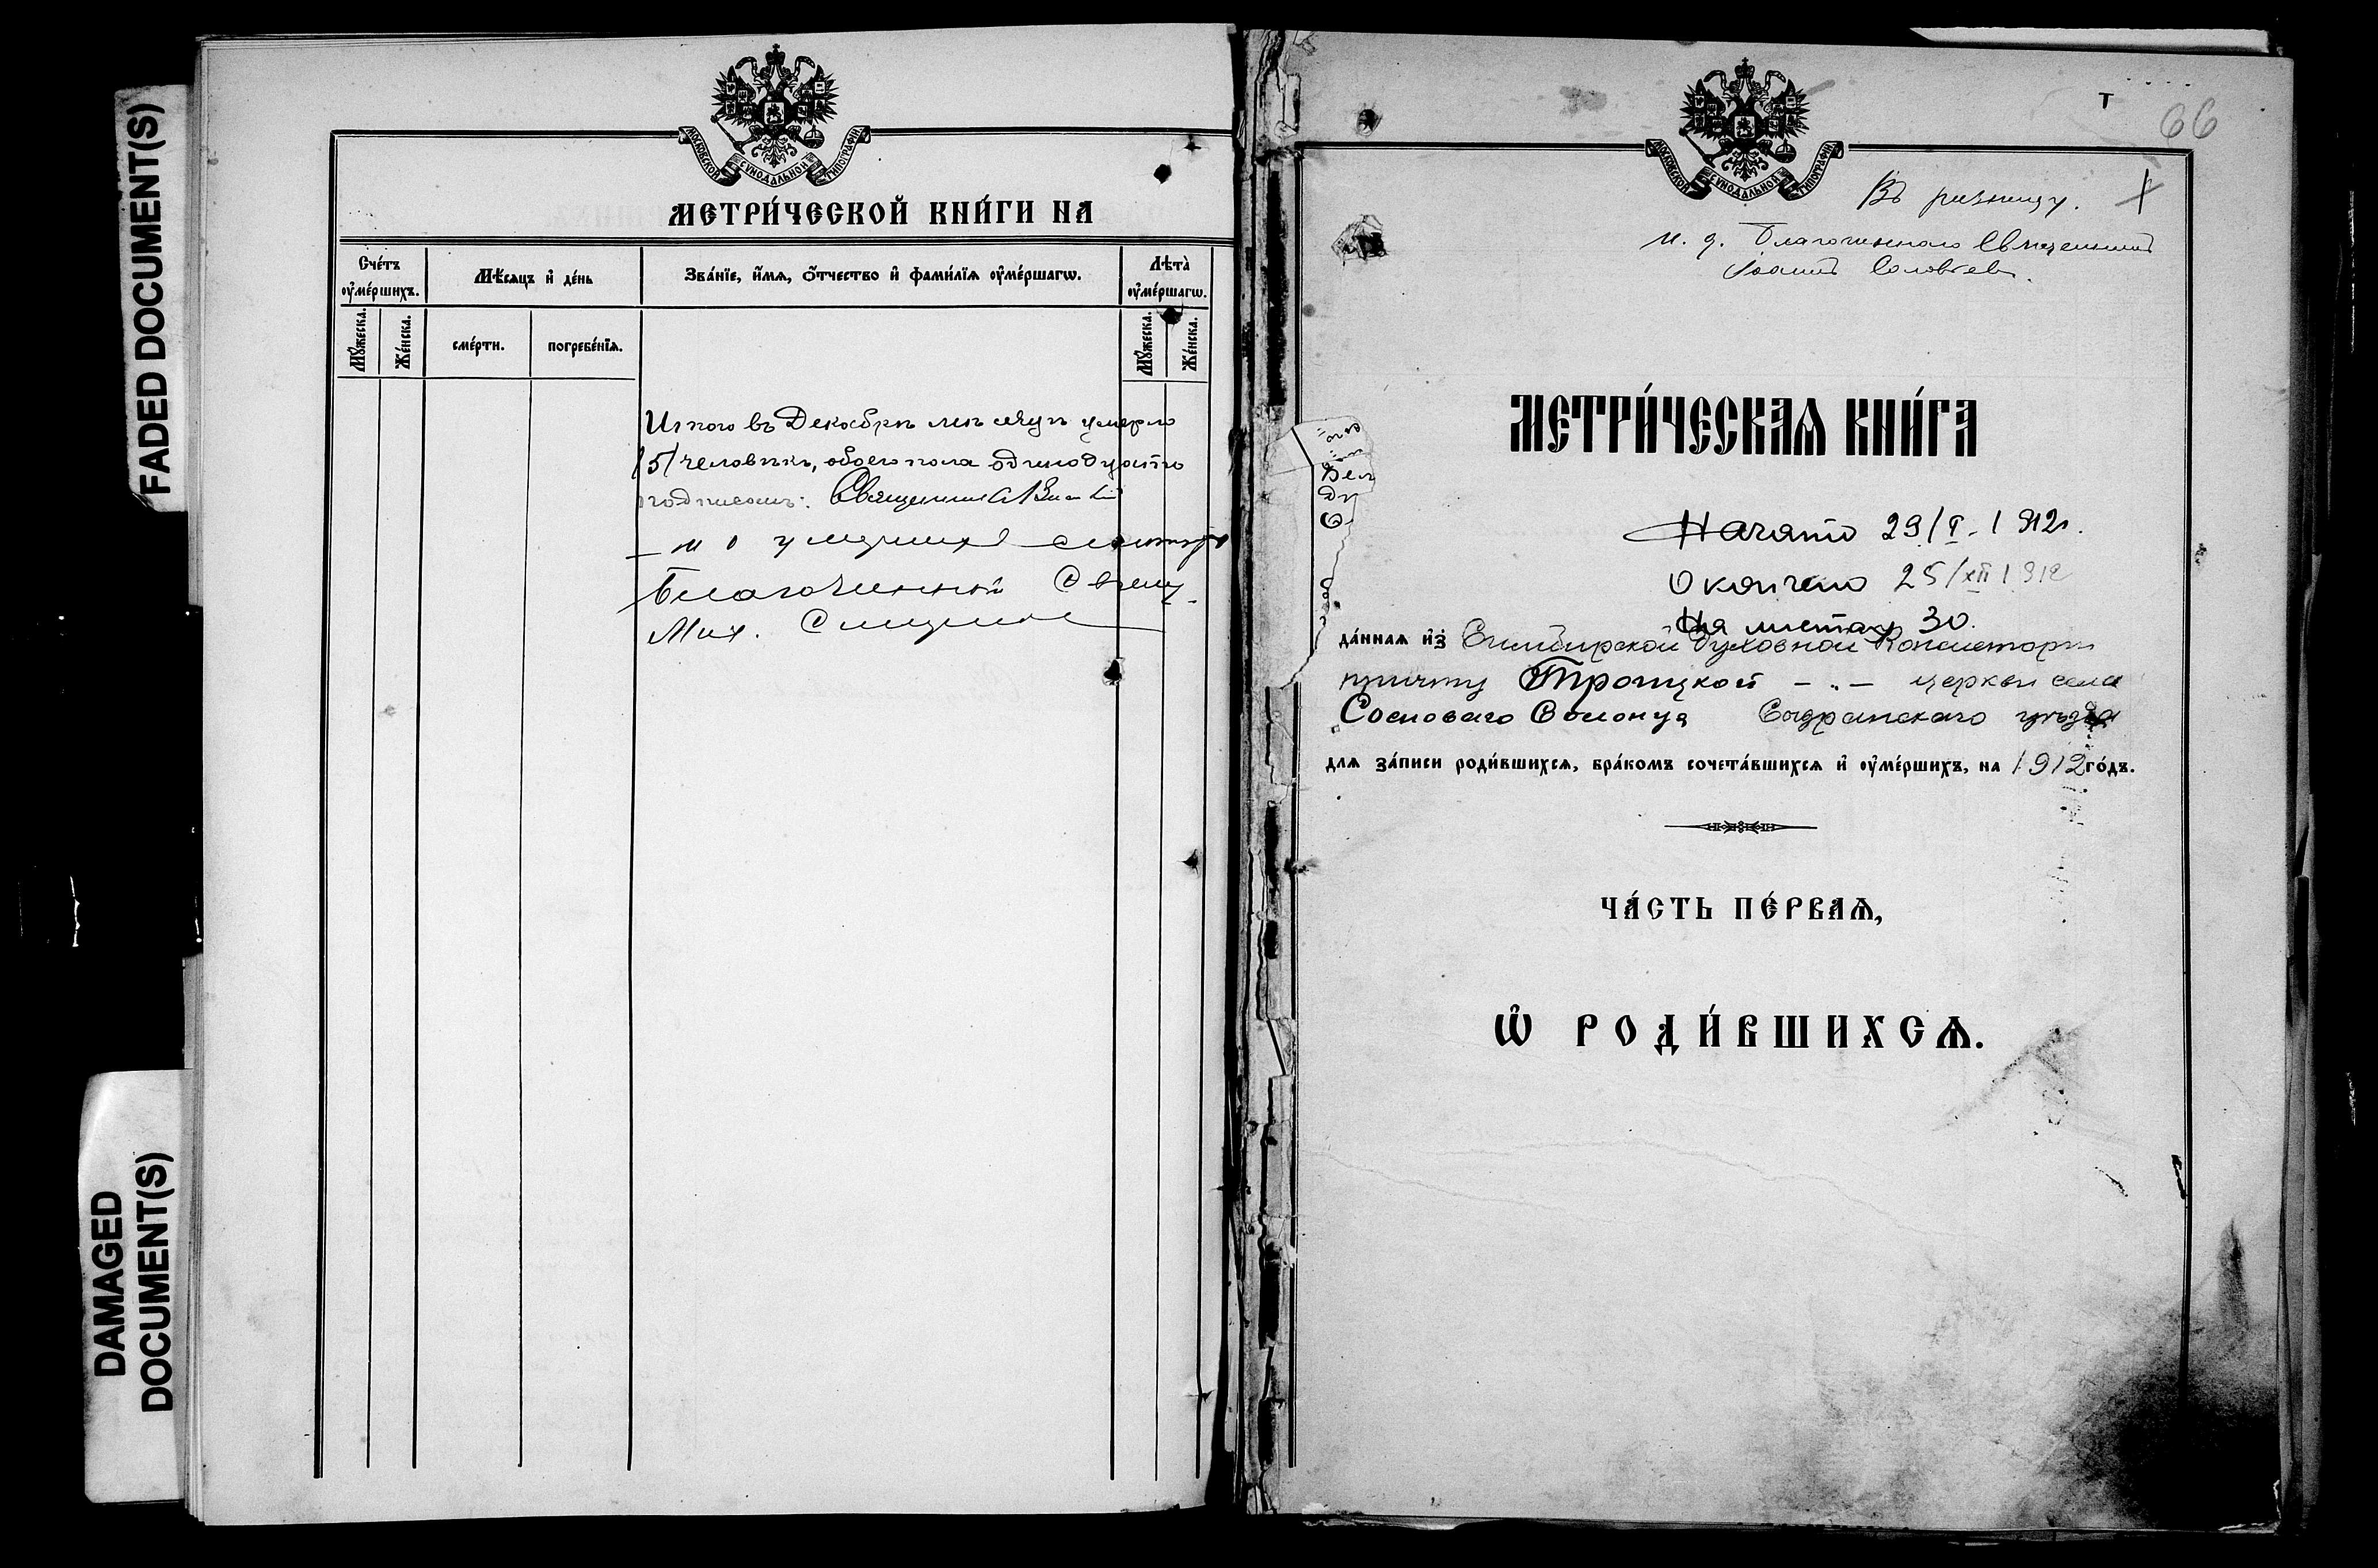 FADED DOCUMENT(S)
DAMAGED
DOCUMENT(S)
МОСКОВСКОЙ СѴНОДАЛЬНОЙ ТИПОГРАФІИ
МЕТРИ́ЧЕСКОЙ КНИ́ГИ НА
Сче́тъ оу҆ме́ршихъ.
Мѣ́сяцъ и҆ де́нь
Зва́нїе, и҆́мѧ, ѻ҆́тчество и҆ фами́лїѧ оу҆ме́ршагѡ.
Лѣта̀ оу҆ме́ршагѡ.
Мꙋ́жеска.
Же́нска.
сме́рти.
погребе́нїѧ.
Мꙋ́жеска.
Же́нска.
Итого въ Декабрѣ мѣсяцѣ умерло
человѣкъ, обоего пола одинадцать
подписомъ: Священникъ
умершихъ
Благочинный Свящ.
Мих.
МОСКОВСКОЙ СѴНОДАЛЬНОЙ ТИПОГРАФІИ
Т
66
Въ ризницу.
И. д. Благочиннаго Священникъ
Іоаннъ Соловьевъ.
МЕТРИ́ЧЕСКАѦ КНИ́ГА
Начато 29/I - 1912г.
Окончено 25/XII 1912
На листах 30.
да́ннаѧ и҆з̾ Симбирской Духовной Консисторіи
причту Троицкой - „ - церкви села
Сосноваго Солонца Сызранскаго уѣзда
длѧ за́писи роди́вшихсѧ, бра́комъ сочета́вшихсѧ и҆ оу҆ме́ршихъ, на 1912 го́дъ.
ЧА́СТЬ ПЕ́РВАѦ,
Ѡ҆ РОДИ́ВШИХСѦ.